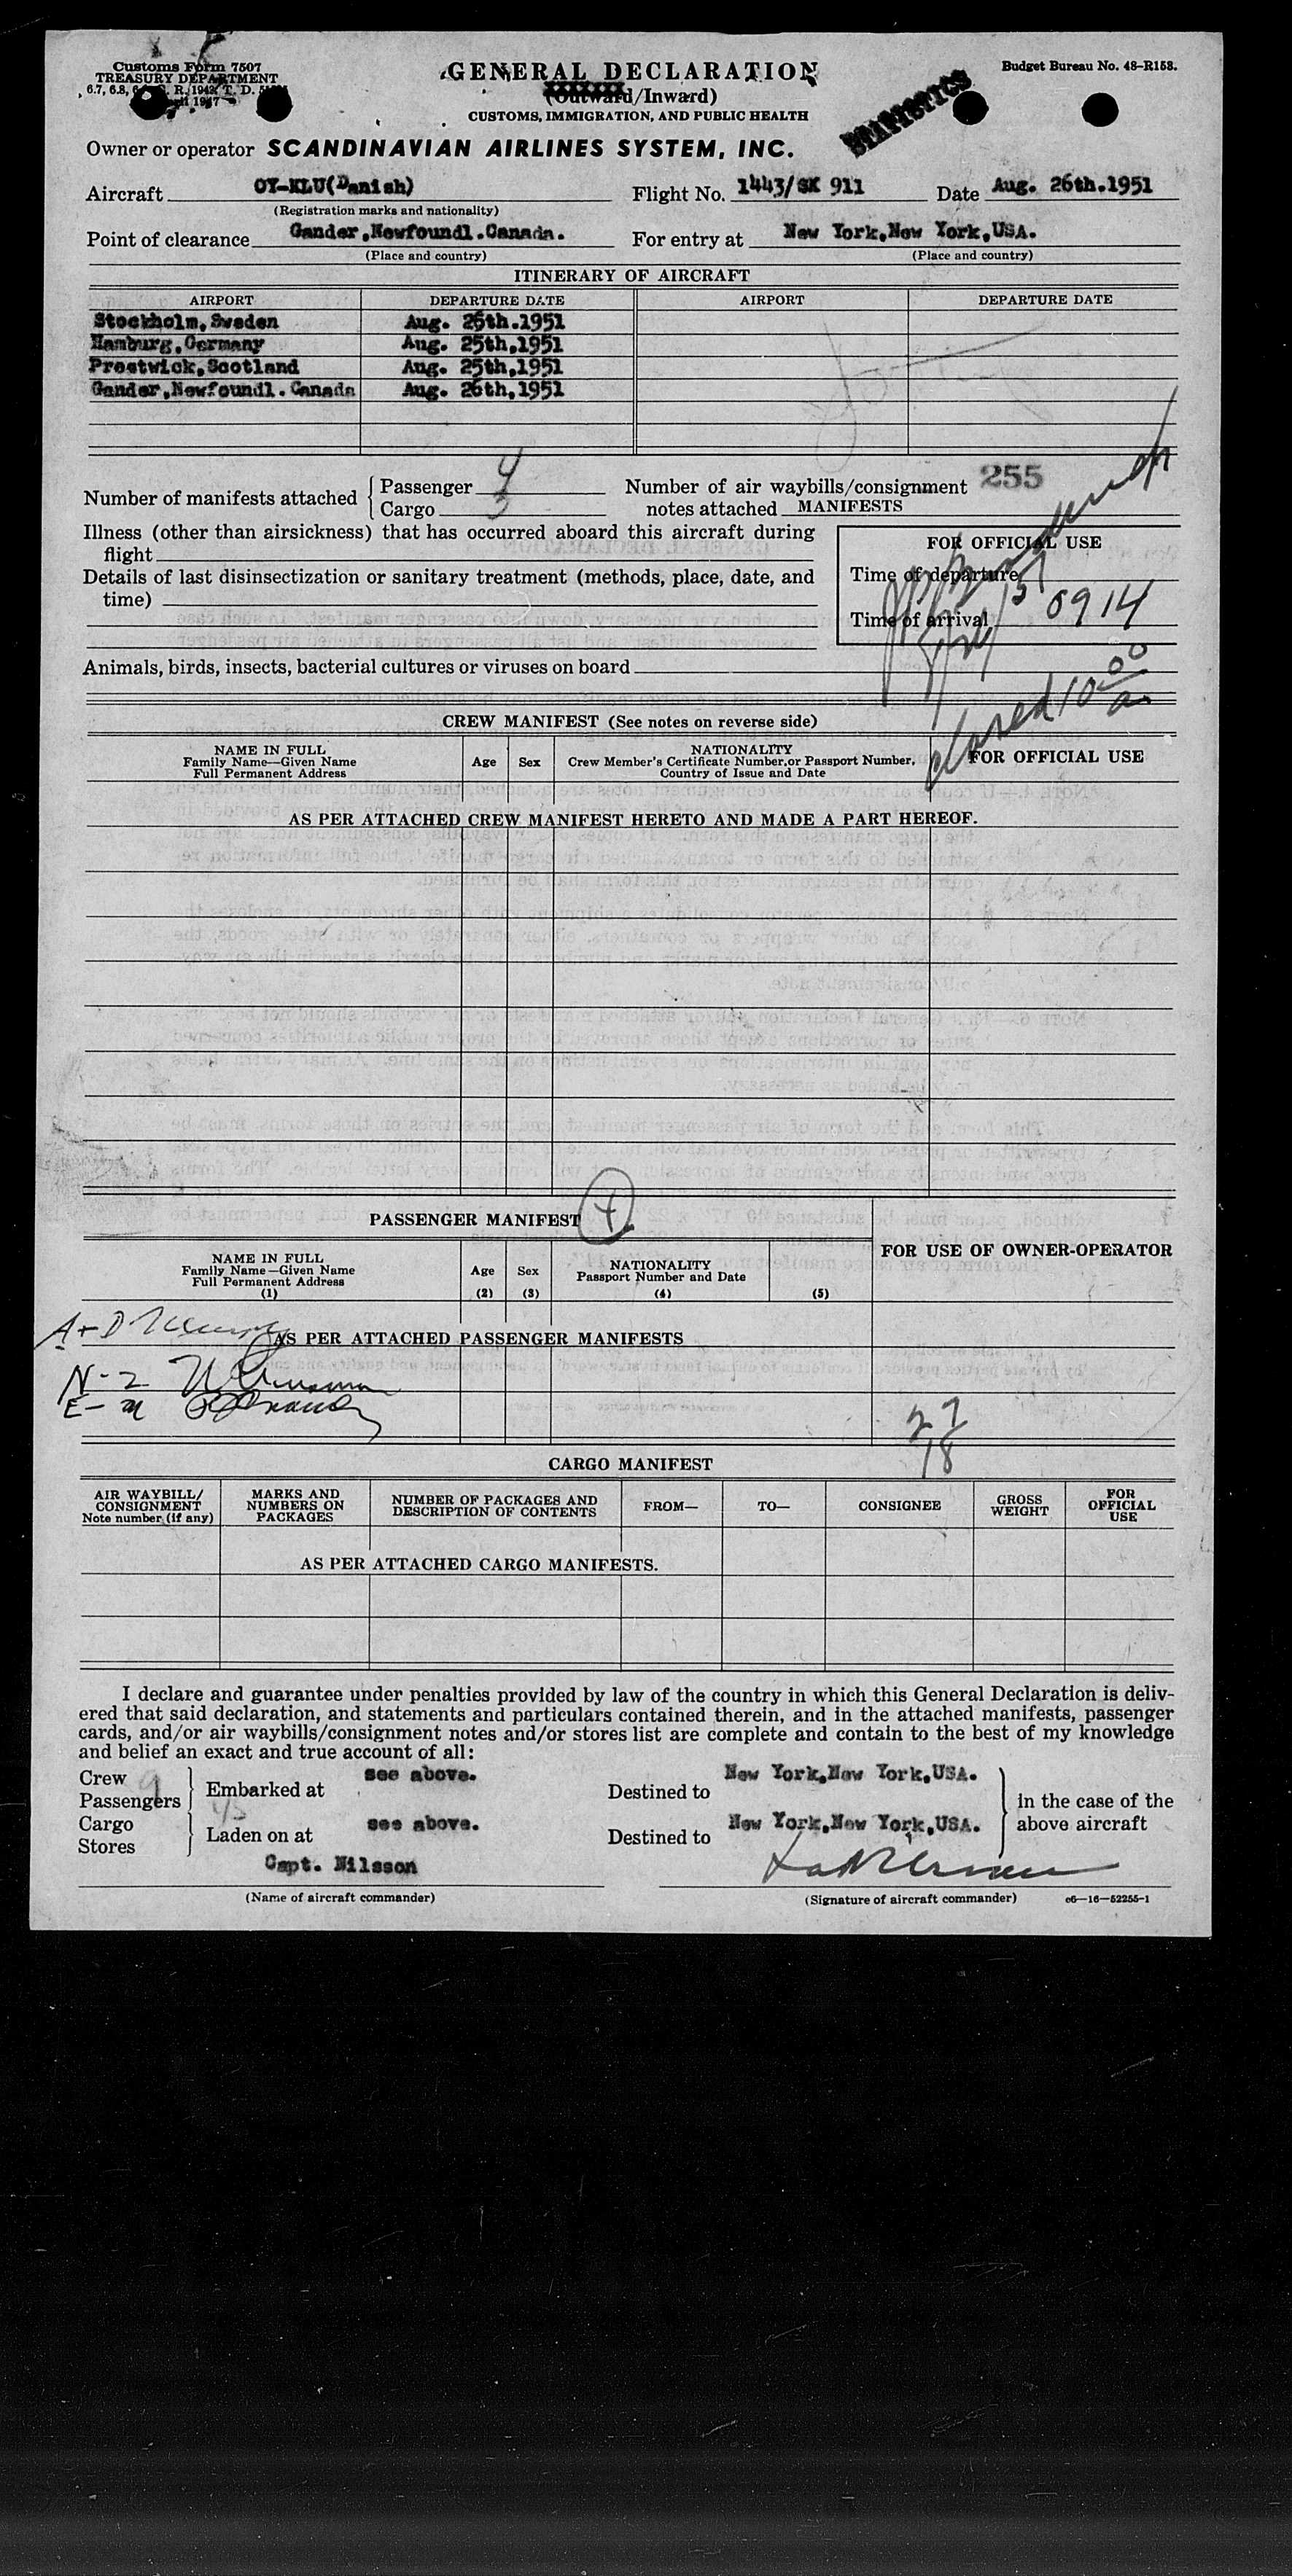 Customs Form 7507
TREASURY DEPARTMENT
GENERAL DECLARATION
(Outward/Inward)
CUSTOMS, IMMIGRATION, AND PUBLIC HEALTH
Budget Bureau No. 48-R158.
STATISTICS
Owner or operator SCANDINAVIAN AIRLINES SYSTEM, INC.
Aircraft OY-KLU(Danish) Flight No. 1443/SK 911 Date Aug. 26th.1951
(Registration marks and nationality)
Point of clearance Gander,Newfoundl.Canada. For entry at New York,New York,USA.
(Place and country) (Place and country)
ITINERARY OF AIRCRAFT
AIRPORT DEPARTURE DATE AIRPORT DEPARTURE DATE
Stockholm,Sweden Aug. 25th.1951
Hamburg,Germany Aug. 25th,1951
Prestwick,Scotland Aug. 25th,1951
Gander,Newfoundl.Canada Aug. 26th,1951
Number of manifests attached { Passenger 4
Cargo 3
Number of air waybills/consignment 255
notes attached MANIFESTS
Illness (other than airsickness) that has occurred aboard this aircraft during
flight
Details of last disinsectization or sanitary treatment (methods, place, date, and
time)
FOR OFFICIAL USE
Time of departure
Time of arrival 0914
Animals, birds, insects, bacterial cultures or viruses on board
closed 10 00 a
CREW MANIFEST (See notes on reverse side)
NAME IN FULL
Family Name—Given Name
Full Permanent Address
Age Sex
NATIONALITY
Crew Member's Certificate Number, or Passport Number,
Country of Issue and Date
FOR OFFICIAL USE
AS PER ATTACHED CREW MANIFEST HERETO AND MADE A PART HEREOF.
PASSENGER MANIFEST 4
FOR USE OF OWNER-OPERATOR
NAME IN FULL
Family Name—Given Name
Full Permanent Address
(1)
Age
(2)
Sex
(3)
NATIONALITY
Passport Number and Date
(4) (5)
A+D
AS PER ATTACHED PASSENGER MANIFESTS
N-2
E-
27
18
CARGO MANIFEST
AIR WAYBILL/
CONSIGNMENT
Note number (if any)
MARKS AND
NUMBERS ON
PACKAGES
NUMBER OF PACKAGES AND
DESCRIPTION OF CONTENTS
FROM— TO— CONSIGNEE
GROSS
WEIGHT
FOR
OFFICIAL
USE
AS PER ATTACHED CARGO MANIFESTS.
I declare and guarantee under penalties provided by law of the country in which this General Declaration is deliv-
ered that said declaration, and statements and particulars contained therein, and in the attached manifests, passenger
cards, and/or air waybills/consignment notes and/or stores list are complete and contain to the best of my knowledge
and belief an exact and true account of all:
Crew 9
Passengers 45
Embarked at see above. Destined to New York,New York,USA.
Cargo
Stores
Laden on at see above. Destined to New York,New York,USA.
in the case of the
above aircraft
Capt. Nilsson
(Name of aircraft commander) (Signature of aircraft commander) c6—16—52255-1